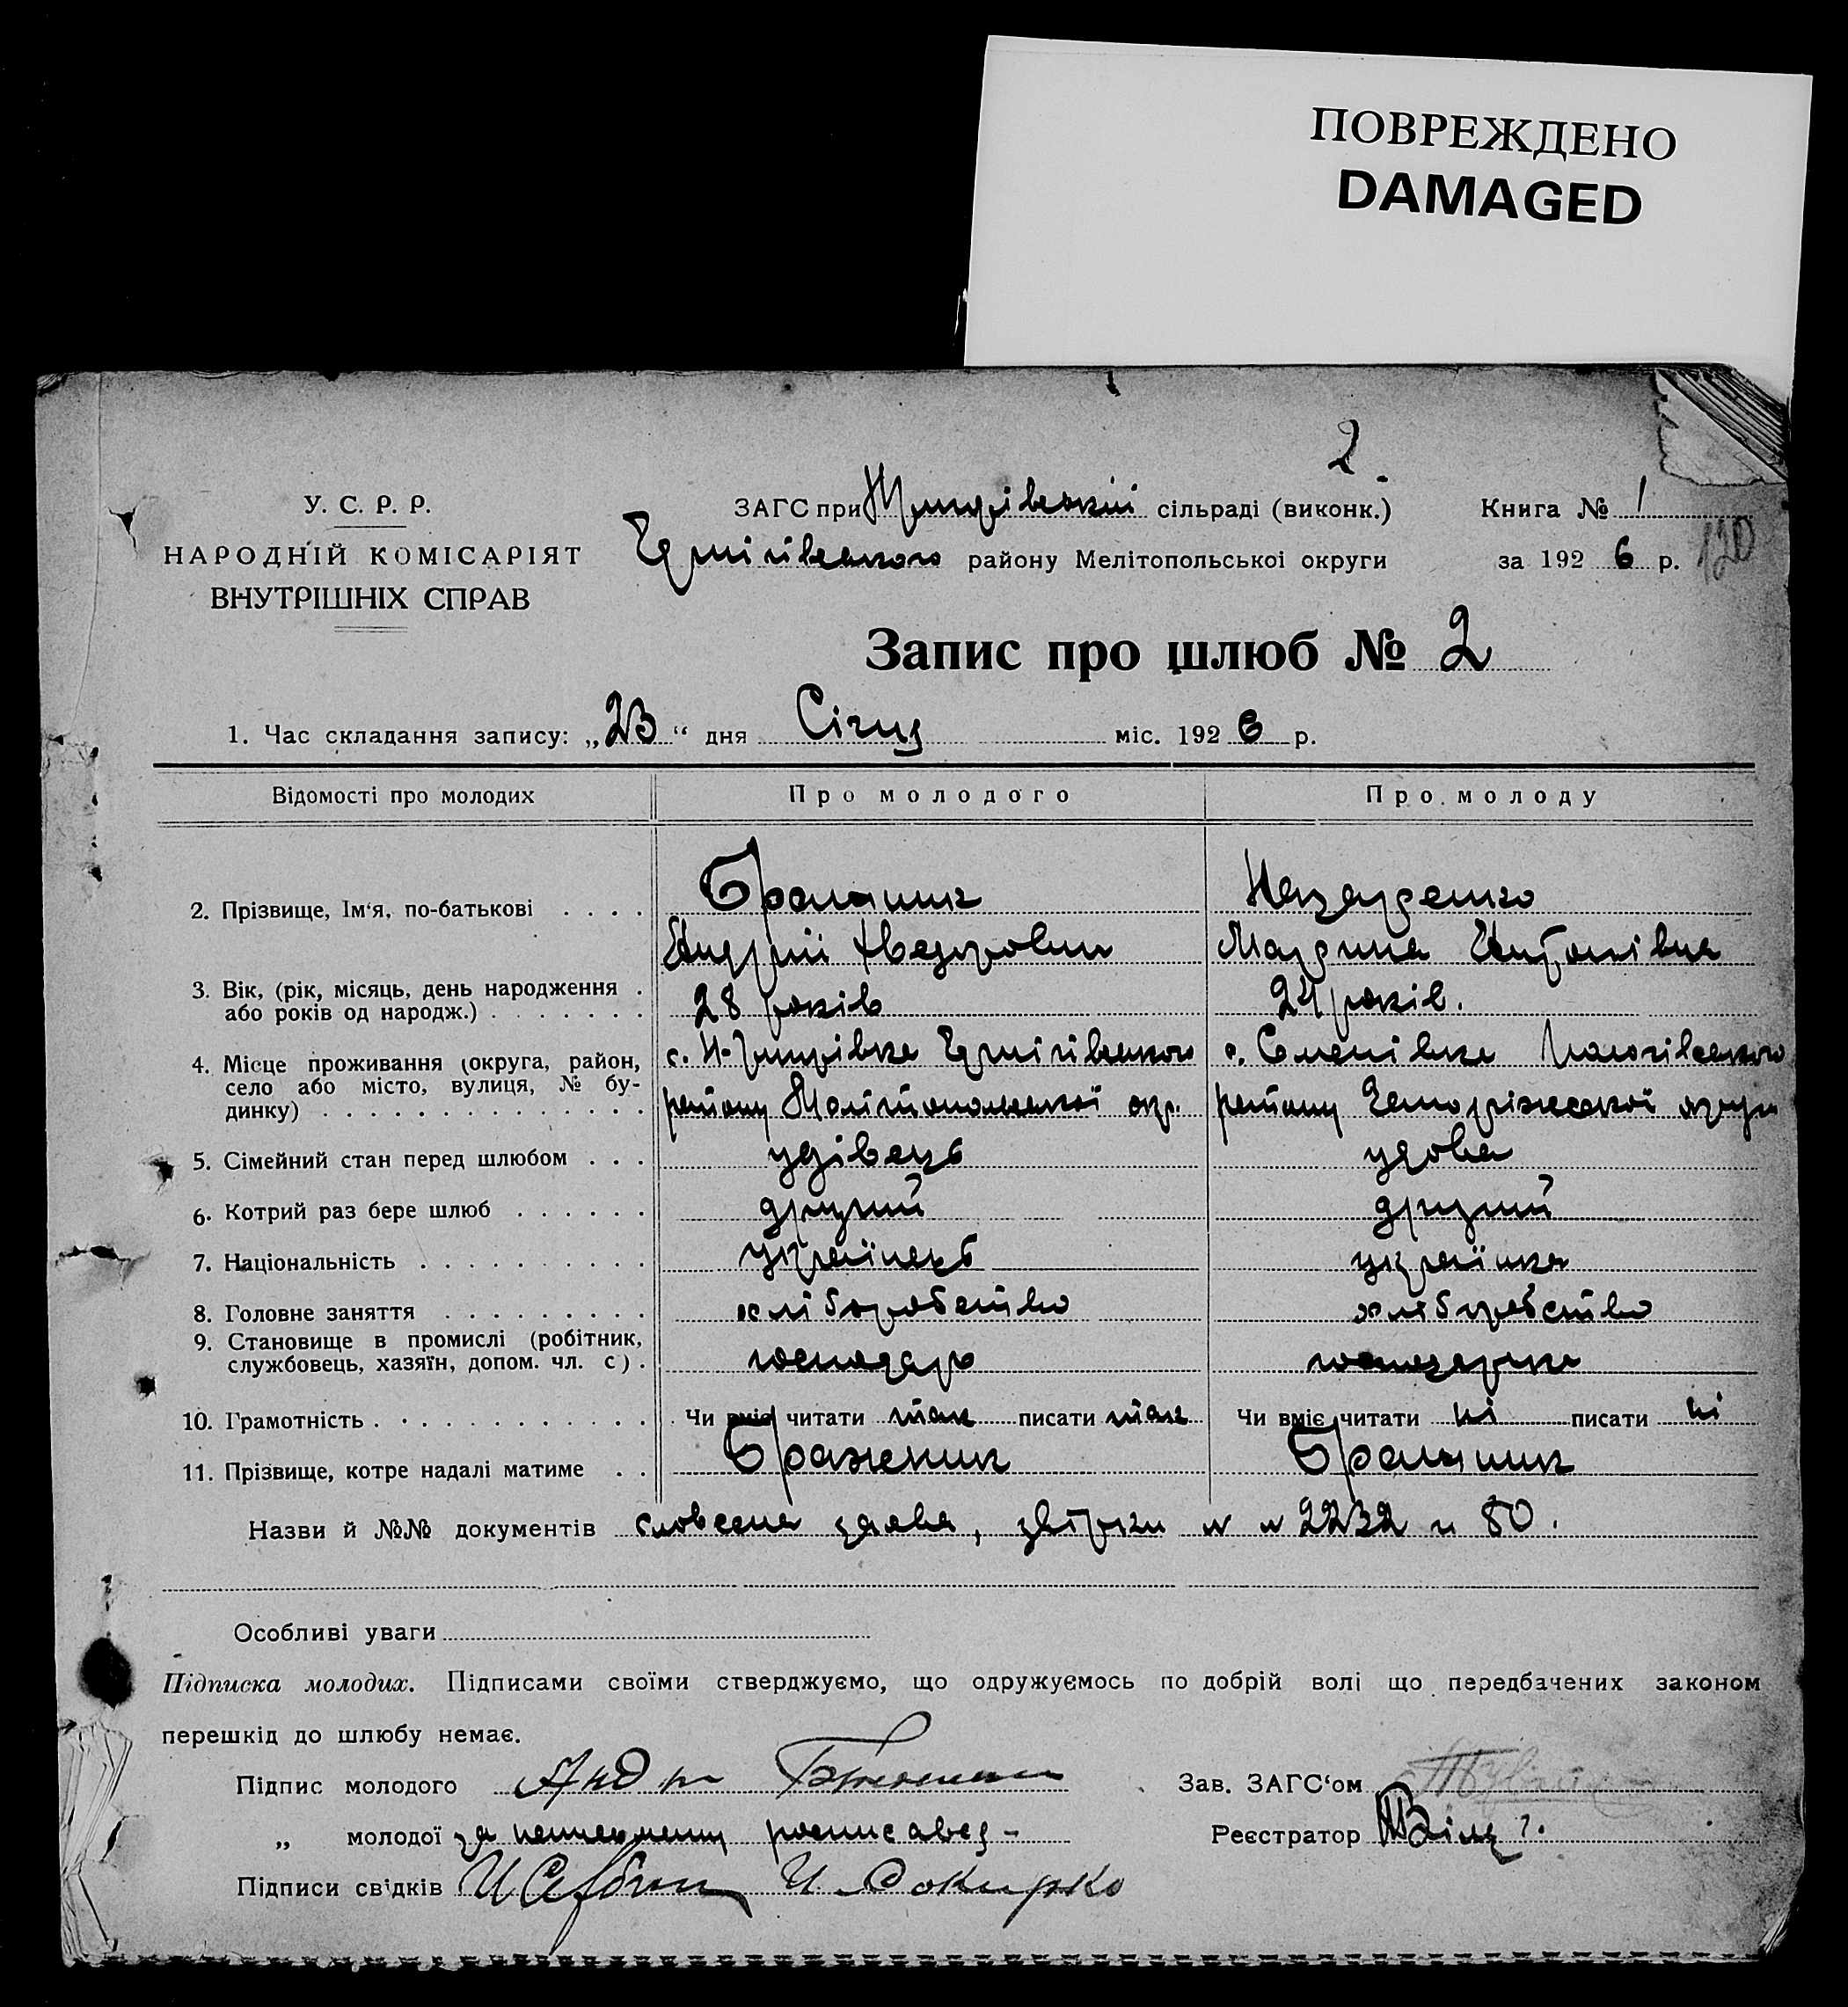 ПОВРЕЖДЕНО
DAMAGED
2
У. С. Р. Р.
НАРОДНІЙ КОМІСАРІЯТ
ВНУТРІШНІХ СПРАВ
ЗАГС при сільраді (виконк.)
Чернігівського району Мелітопольської округи
Книга № 1
за 1926 р.
120
Запис про шлюб № 2
1. Час складання запису: „23“ дня Січня міс. 1926 р.
Відомості про молодих Про молодого Про молоду
2. Прізвище, Ім'я, по-батькові Бражник Назаренко
Андрій Хведорович Марина Антонівна
3. Вік, (рік, місяць, день народження 28 років 24 років.
або років од народж.)
4. Місце проживання (округа, район, с. Чернігівського с. Семенівка Пологівського
село або місто, вулиця, № бу- району Мелітопольської окр. району Запоріжської округи
динку)
5. Сімейний стан перед шлюбом удівець удова
6. Котрий раз бере шлюб другий другий
7. Національність українець українка
8. Головне заняття хліборобство хліборобство
9. Становище в промислі (робітник, господарь господарка
службовець, хазяїн, допом. чл. с).
10. Грамотність Чи вміє читати так писати так Чи вміє читати ні писати ні
11. Прізвище, котре надалі матиме Браженик Бражник
Назви й №№ документів словесна заява, 2232 и 80.
Особливі уваги
Підписка молодих. Підписами своїми стверджуємо, що одружуємось по добрій волі що передбачених законом
перешкід до шлюбу немає.
Підпис молодого
Зав. ЗАГС'ом
„ молодої за неписьменну росписавсь -
Реєстратор
Підписи свідків И Сокирко